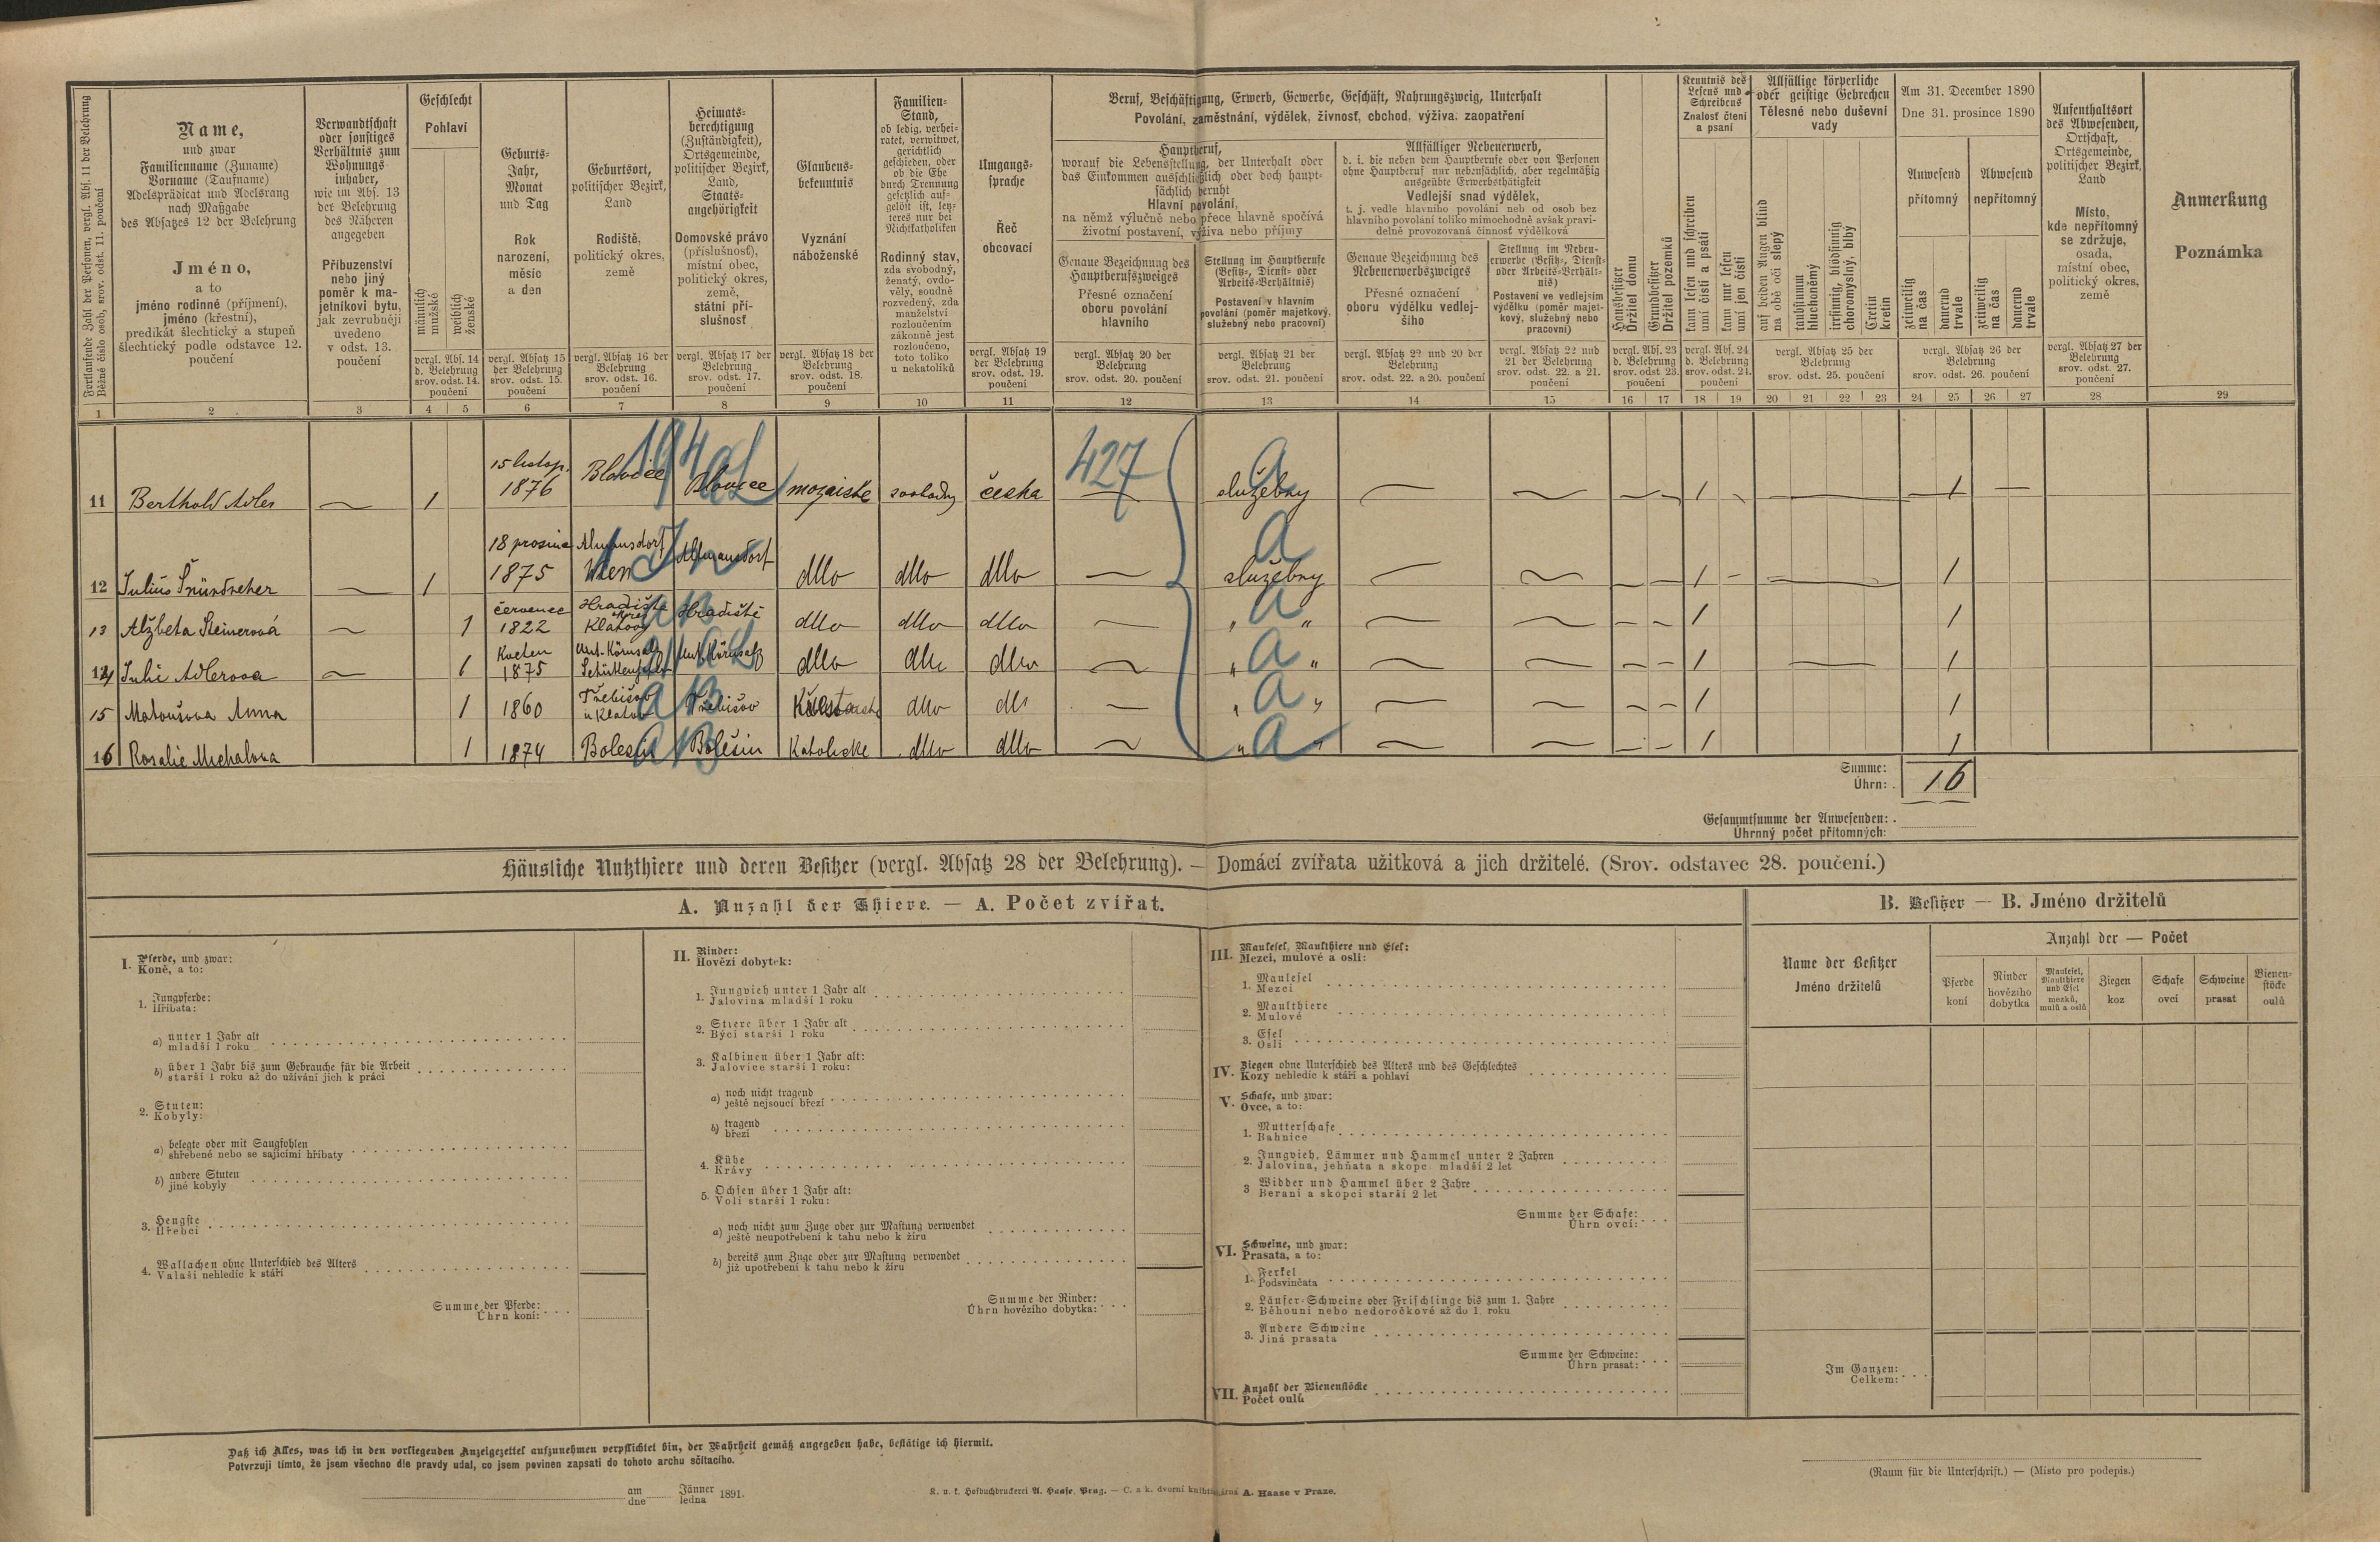 Fortlaufende Zahl der Personen, vergl. Abs. 11 der Belehrung
Běžné číslo osob, srov. odst. 11. poučení
1
Name,
und zwar
Familienname (Zuname)
Vorname (Taufname)
Adelsprädicat und Adelsrang
nach Maßgabe
des Absatzes 12 der Belehrung
Jméno,
a to
jméno rodinné (příjmení),
jméno (křestní),
predikát šlechtický a stupeň
šlechtický podle odstavce 12.
poučení
2
Verwandtschaft
oder sonstiges
Verhältnis zum
Wohnungs-
inhaber,
wie im Abs. 13
der Belehrung
des Näheren
angegeben
Příbuzenství
nebo jiný
poměr k ma-
jetníkovi bytu,
jak zevrubněji
uvedeno
v odst. 13.
poučení
3
Geschlecht
Pohlaví
männlich
mužské
weiblich
ženské
vergl. Abs. 14
d. Belehrung
srov. odst. 14.
poučení
4 5
Geburts-
Jahr,
Monat
und Tag
Rok
narození,
měsíc
a den
vergl. Absatz 15
der Belehrung
srov. odst. 15.
poučení
6
Geburtsort,
politischer Bezirk,
Land
Rodiště,
politický okres,
země
vergl. Absatz 16 der
Belehrung
srov. odst. 16.
poučení
7
Heimats-
berechtigung
(Zuständigkeit),
Ortsgemeinde,
politischer Bezirk,
Land,
Staats-
angehörigkeit
Domovské právo
(příslušnosť),
místní obec,
politický okres,
země,
státní pří-
slušnosť
vergl. Absatz 17 der
Belehrung
srov. odst. 17.
poučení
8
Glaubens-
bekenntnis
Vyznání
náboženské
vergl. Absatz 18 der
Belehrung
srov. odst. 18.
poučení
9
Familien-
Stand,
ob ledig, verhei-
ratet, verwitwet,
gerichtlich
geschieden, oder
ob die Ehe
durch Trennung
gesetzlich auf-
gelöst ist, letz-
teres nur bei
Nichtkatholiken
Rodinný stav,
zda svobodný,
ženatý, ovdo-
věly, soudně
rozvedený, zda
manželství
rozloučením
zákonně jest
rozloučeno,
toto toliko
u nekatolíků
10
Umgangs-
sprache
Řeč
obcovací
vergl. Absatz 19
der Belehrung
srov. odst. 19.
poučení
11
Beruf, Beschäftigung, Erwerb, Gewerbe, Geschäft, Nahrungszweig, Unterhalt
Povolání, zaměstnání, výdělek, živnosť, obchod, výživa, zaopatření
Hauptberuf,
worauf die Lebensstellung, der Unterhalt oder
das Einkommen ausschließlich oder doch haupt-
sächlich beruht
Hlavní povolání,
na němž výlučně nebo přece hlavně spočívá
životní postavení, výživa nebo příjmy
Genaue Bezeichnung des
Hauptberufszweiges
Přesné označení
oboru povolání
hlavního
vergl. Absatz 20 der
Belehrung
srov. odst. 20. poučení
12
Stellung im Hauptberufe
(Besitz-, Dienst- oder
Arbeits-Verhältnis)
Postavení v hlavním
povolání (poměr majetkový,
služebný nebo pracovní)
vergl. Absatz 21 der
Belehrung
srov. odst. 21. poučení
13
Allfälliger Nebenerwerb,
d. i. die neben dem Hauptberufe oder von Personen
ohne Hauptberuf nur nebensächlich, aber regelmäßig
ausgeübte Erwerbsthätigkeit
Vedlejší snad výdělek,
t. j. vedle hlavního povolání neb od osob bez
hlavního povolání toliko mimochodně avšak pravi-
delně provozovaná činnosť výdělková
Genaue Bezeichnung des
Nebenerwerbszweiges
Přesné označení
oboru výdělku vedlej-
šího
vergl. Absatz 22 und 20 der
Belehrung
srov. odst. 22. a 20. poučení
14
Stellung im Neben-
erwerbe (Besitz-, Dienst-
oder Arbeits-Verhält-
nis)
Postavení ve vedlejším
výdělku (poměr majet-
kový, služebný nebo
pracovní)
vergl. Absatz 22 und
21 der Belehrung
srov. odst. 22. a 21.
poučení
15
Hausbesitzer
Držitel domu
Grundbesitzer
Držitel pozemků
vergl. Abs. 23
d. Belehrung
srov. odst. 23.
poučení
16 17
Kenntnis des
Lesens und
Schreibens
Znalosť čtení
a psaní
kann lesen und schreiben
umí čísti a psáti
kann nur lesen
umí jen čísti
vergl. Abs. 24
d. Belehrung
srov. odst. 24.
poučení
18 19
Allfällige körperliche
oder geistige Gebrechen
Tělesné nebo duševní
vady
auf beiden Augen blind
na obě oči slepý
taubstumm
hluchoněmý
irrsinnig, blödsinnig
choromyslný, blbý
Cretin
kretin
vergl. Absatz 25 der
Belehrung
srov. odst. 25. poučení
20 21 22 23
Am 31. December 1890
Dne 31. prosince 1890
Anwesend
přítomný
Abwesend
nepřítomný
zeitweilig
na čas
dauernd
trvale
zeitweilig
na čas
dauernd
trvale
vergl. Absatz 26 der
Belehrung
srov. odst. 26. poučení
24 25 26 27
Aufenthaltsort
des Abwesenden,
Ortschaft,
Ortsgemeinde,
politischer Bezirk,
Land
Místo,
kde nepřítomný
se zdržuje,
osada,
místní obec,
politický okres,
země
vergl. Absatz 27 der
Belehrung
srov. odst. 27.
poučení
28
Anmerkung
Poznámka
29
11 Berthold Adler 1 15 listop. 1876 Blovice Blovice mozaiske svobodny česka 427 služebny a 1 1
12 Julius 1 18 prosince 1875 Altmansdorf Wien Altmansdorf dtto dtto dtto služebny a 1 1
13 Alžbeta Steinerová 1 červenec 1822 Hradiště okres Klatovy Hradiště dtto dtto dtto " a " 1 1
14 Julie Adlerova 1 Květen 1875 dtto dtto dtto " a " 1 1
15 Matoušova Anna 1 1860 Třebišov u Klatov Třebišov dtto dtto " a " 1 1
16 Rosalie Michalova 1 1874 Bolešin Bolešin Katolicke dtto dtto " a " 1 1
Summe:
Úhrn: 16
Gesammtsumme der Anwesenden:
Úhrnný počet přítomných:
Häusliche Nutzthiere und deren Besitzer (vergl. Absatz 28 der Belehrung). — Domácí zvířata užitková a jich držitelé. (Srov. odstavec 28. poučení.)
A. Anzahl der Thiere. — A. Počet zvířat.
I. Pferde, und zwar:
Koně, a to:
1. Jungpferde:
Hříbata:
a) unter 1 Jahr alt
mladší 1 roku
b) über 1 Jahr bis zum Gebrauche für die Arbeit
starší 1 roku až do užívání jich k práci
2. Stuten:
Kobyly:
a) belegte oder mit Saugfohlen
shřebené nebo se sajícími hříbaty
b) andere Stuten
jiné kobyly
3. Hengste
Hřebci
4. Wallachen ohne Unterschied des Alters
Valaši nehledíc k stáří
Summe der Pferde:
Úhrn koní:
II. Rinder:
Hovězí dobytek:
1. Jungvieh unter 1 Jahr alt
Jalovina mladší 1 roku
2. Stiere über 1 Jahr alt
Býci starší 1 roku
3. Kalbinen über 1 Jahr alt:
Jalovice starší 1 roku:
a) noch nicht tragend
ještě nejsoucí březí
b) tragend
březí
4. Kühe
Krávy
5. Ochsen über 1 Jahr alt:
Voli starší 1 roku:
a) noch nicht zum Zuge oder zur Mastung verwendet
ještě neupotřebení k tahu nebo k žíru
b) bereits zum Zuge oder zur Mastung verwendet
již upotřebení k tahu nebo k žíru
Summe der Rinder:
Úhrn hovězího dobytka:
III. Maulesel, Maulthiere und Esel:
Mezci, mulové a osli:
1. Maulesel
Mezci
2. Maulthiere
Mulové
3. Esel
Osli
IV. Ziegen ohne Unterschied des Alters und des Geschlechtes
Kozy nehledíc k stáří a pohlaví
V. Schafe, und zwar:
Ovce, a to:
1. Mutterschafe
Bahnice
2. Jungvieh, Lämmer und Hammel unter 2 Jahren
Jalovina, jehňata a skopci mladší 2 let
3 Widder und Hammel über 2 Jahre
Berani a skopci starší 2 let
Summe der Schafe:
Úhrn ovcí:
VI. Schweine, und zwar:
Prasata, a to:
1. Ferkel
Podsvinčata
2. Läufer-Schweine oder Frischlinge bis zum 1. Jahre
Běhouni nebo nedoročkové až do 1. roku
3. Andere Schweine
Jiná prasata
Summe der Schweine:
Úhrn prasat:
VII. Anzahl der Bienenstöcke
Počet oulů
B. Besitzer — B. Jméno držitelů
Name der Besitzer
Jméno držitelů
Anzahl der — Počet
Pferde
koní
Rinder
hovězího
dobytka
Maulesel,
Maulthiere
und Esel
mezků,
mulů a oslů
Ziegen
koz
Schafe
ovcí
Schweine
prasat
Bienen-
stöcke
oulů
Im Ganzen:
Celkem:
Daß ich Alles, was ich in den vorliegenden Anzeigezettel aufzunehmen verpflichtet bin, der Wahrheit gemäß angegeben habe, bestätige ich hiermit.
Potvrzuji tímto, že jsem všechno dle pravdy udal, co jsem povinen zapsati do tohoto archu sčítacího.
am
dne
Jänner
ledna 1891.
K. u. k. Hofbuchdruckerei A. Haase, Prag. — C. a k. dvorní knihtiskárna A. Haase v Praze.
(Raum für die Unterschrift.) — (Místo pro podepis.)